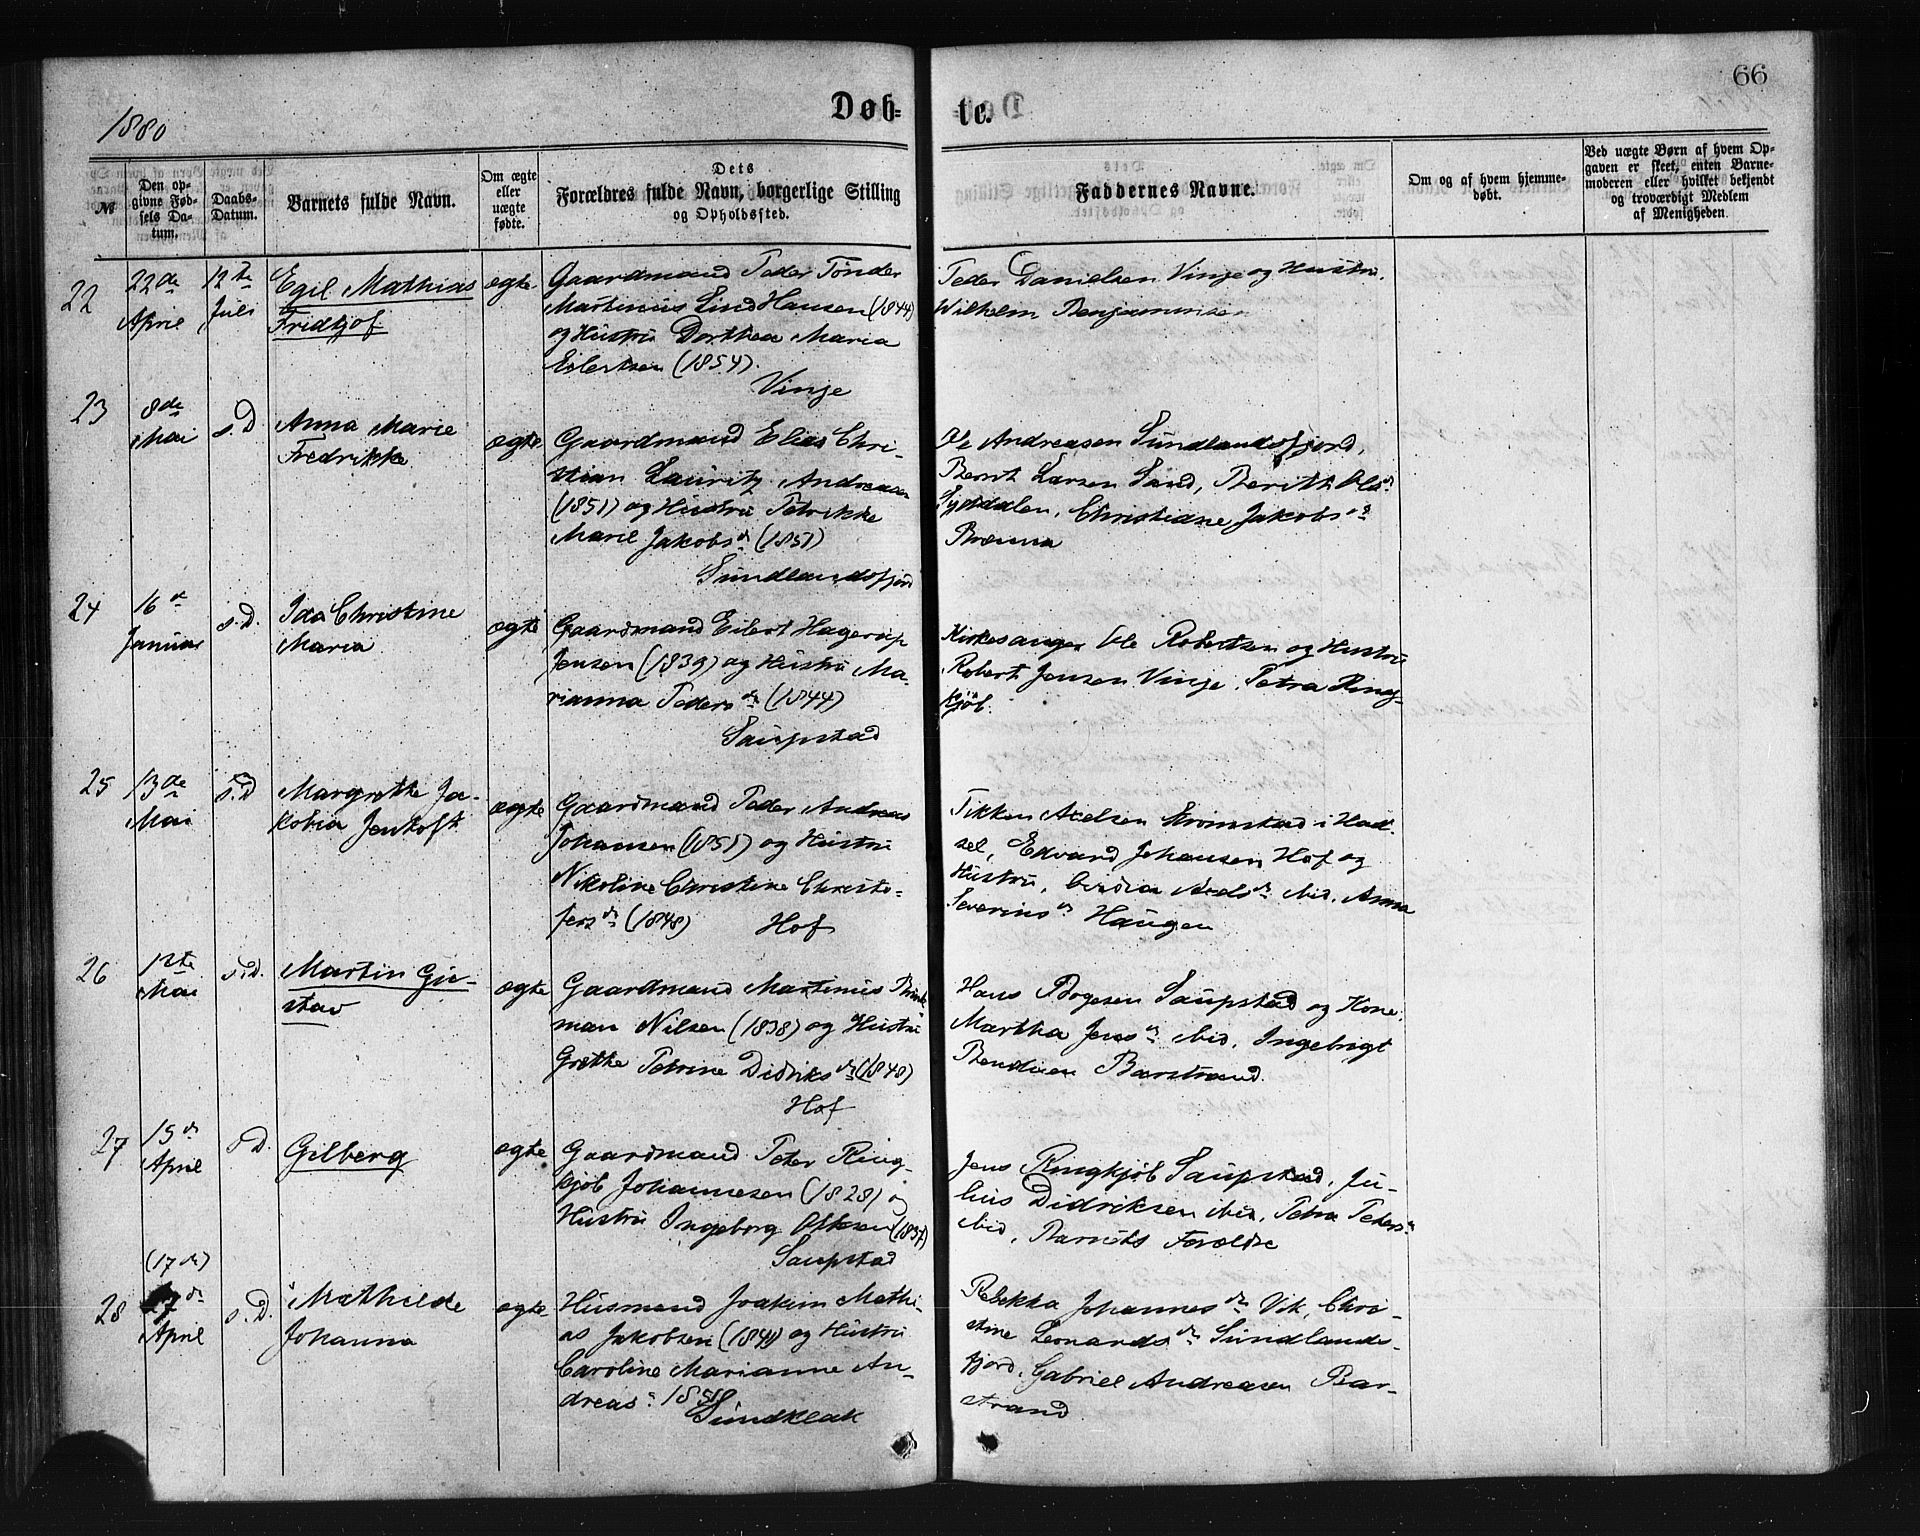 66
1880
Døb-
te.
№
Den op-
givne Fød-
sels Da-
tum.
Daabs-
Datum.
Barnets fulde Navn.
Om ægte
eller
uægte
fødte.
Dets
Forældres fulde Navn, borgerlige Stilling
og Opholdssted.
Faddernes Navne.
Om og af hvem hjemme-
døbt.
Ved uægte Børn af hvem Op-
gaven er skeet, enten Barne-
moderen eller hvilket bekjendt
og troværdigt Medlem
af Menigheden.
22
22de
April
12te
Juli
Egil Mathias
Fridtjof
ægte
Gaardmand Peder Tønder
Martinus Lind Hansen (1844)
og Hustru Dorthea Maria
Eilertsen (1854).
Vinje
Peder Danielsen Vinje og Hustru,
Wilhelm Benjaminsen
23
8de
Mai
s.D
Anna Marie
Fredrikke
ægte
Gaardmand Elias Chri-
stian Lauritz Andreasen
(1851) og Hustru Petrikke
Marie Jakobsdr (1851)
Sundlandsfjord
Ole Andreasen Sundlandsfjord,
Bernt Larsen Sund, Berith Olsdr
Syddalen, Christiane Jakobsdr
Brenna
24
16de
Januar
s.D.
Ida Christine
Maria
ægte
Gaardmand Eilert Hagerup
Jensen (1839) og Hustru Ma-
rianna Pedersdr (1844)
Saupstad
Kirkesanger Ole Robertsen og Hustru
Robert Jensen Vinje, Petra Ring-
kjøb.
25
13de
Mai
s.D
Margrethe Ja-
kobia Jentoft
ægte
Gaardmand Peder Andreas
Johansen (1851) og Hustru
Nikoline Christine Christo-
fersdr (1848)
Hof
Tikken Axelsen Strømstad i Had-
sel, Edvard Johansen Hof og
Hustru, Axelsdr ibid, Anna
Severinsdr Haugen
26
12te
Mai
s.D.
Martin Gu-
stav
ægte
Gaardmand Martinus Brink-
man Nilsen (1838) og Hustru
Grethe Petrine Didriksdr (1848)
Hof
Hans Bogesen Saupstad og Kone
Martha Jensdr ibid, Ingebrigt
Bendixen Barstrand.
27
15de
April
s.D.
Gilberg
ægte
Gaardmand Peter Ring-
kjøb Johannesen (1828) og
Hustru Ingeborg Ottesen (1837)
Saupstad
Jens Ringkjøb Saupstad, Ju-
lius Didriksen ibid, Petra Pedersdr
ibid, Barnets Forældre
28
(17de)
17de
April
s.D.
Mathilde
Johanna
ægte
Husmand Joakim Mathi-
as Jakobsen (1840) og Hustru
Caroline Marianne An-
dreasdr
Sundklak
Rebekka Johannesdr Vik, Chri-
stine Leonardsdr Sundlands-
fjord, Gabriel Andreasen Bar-
strand